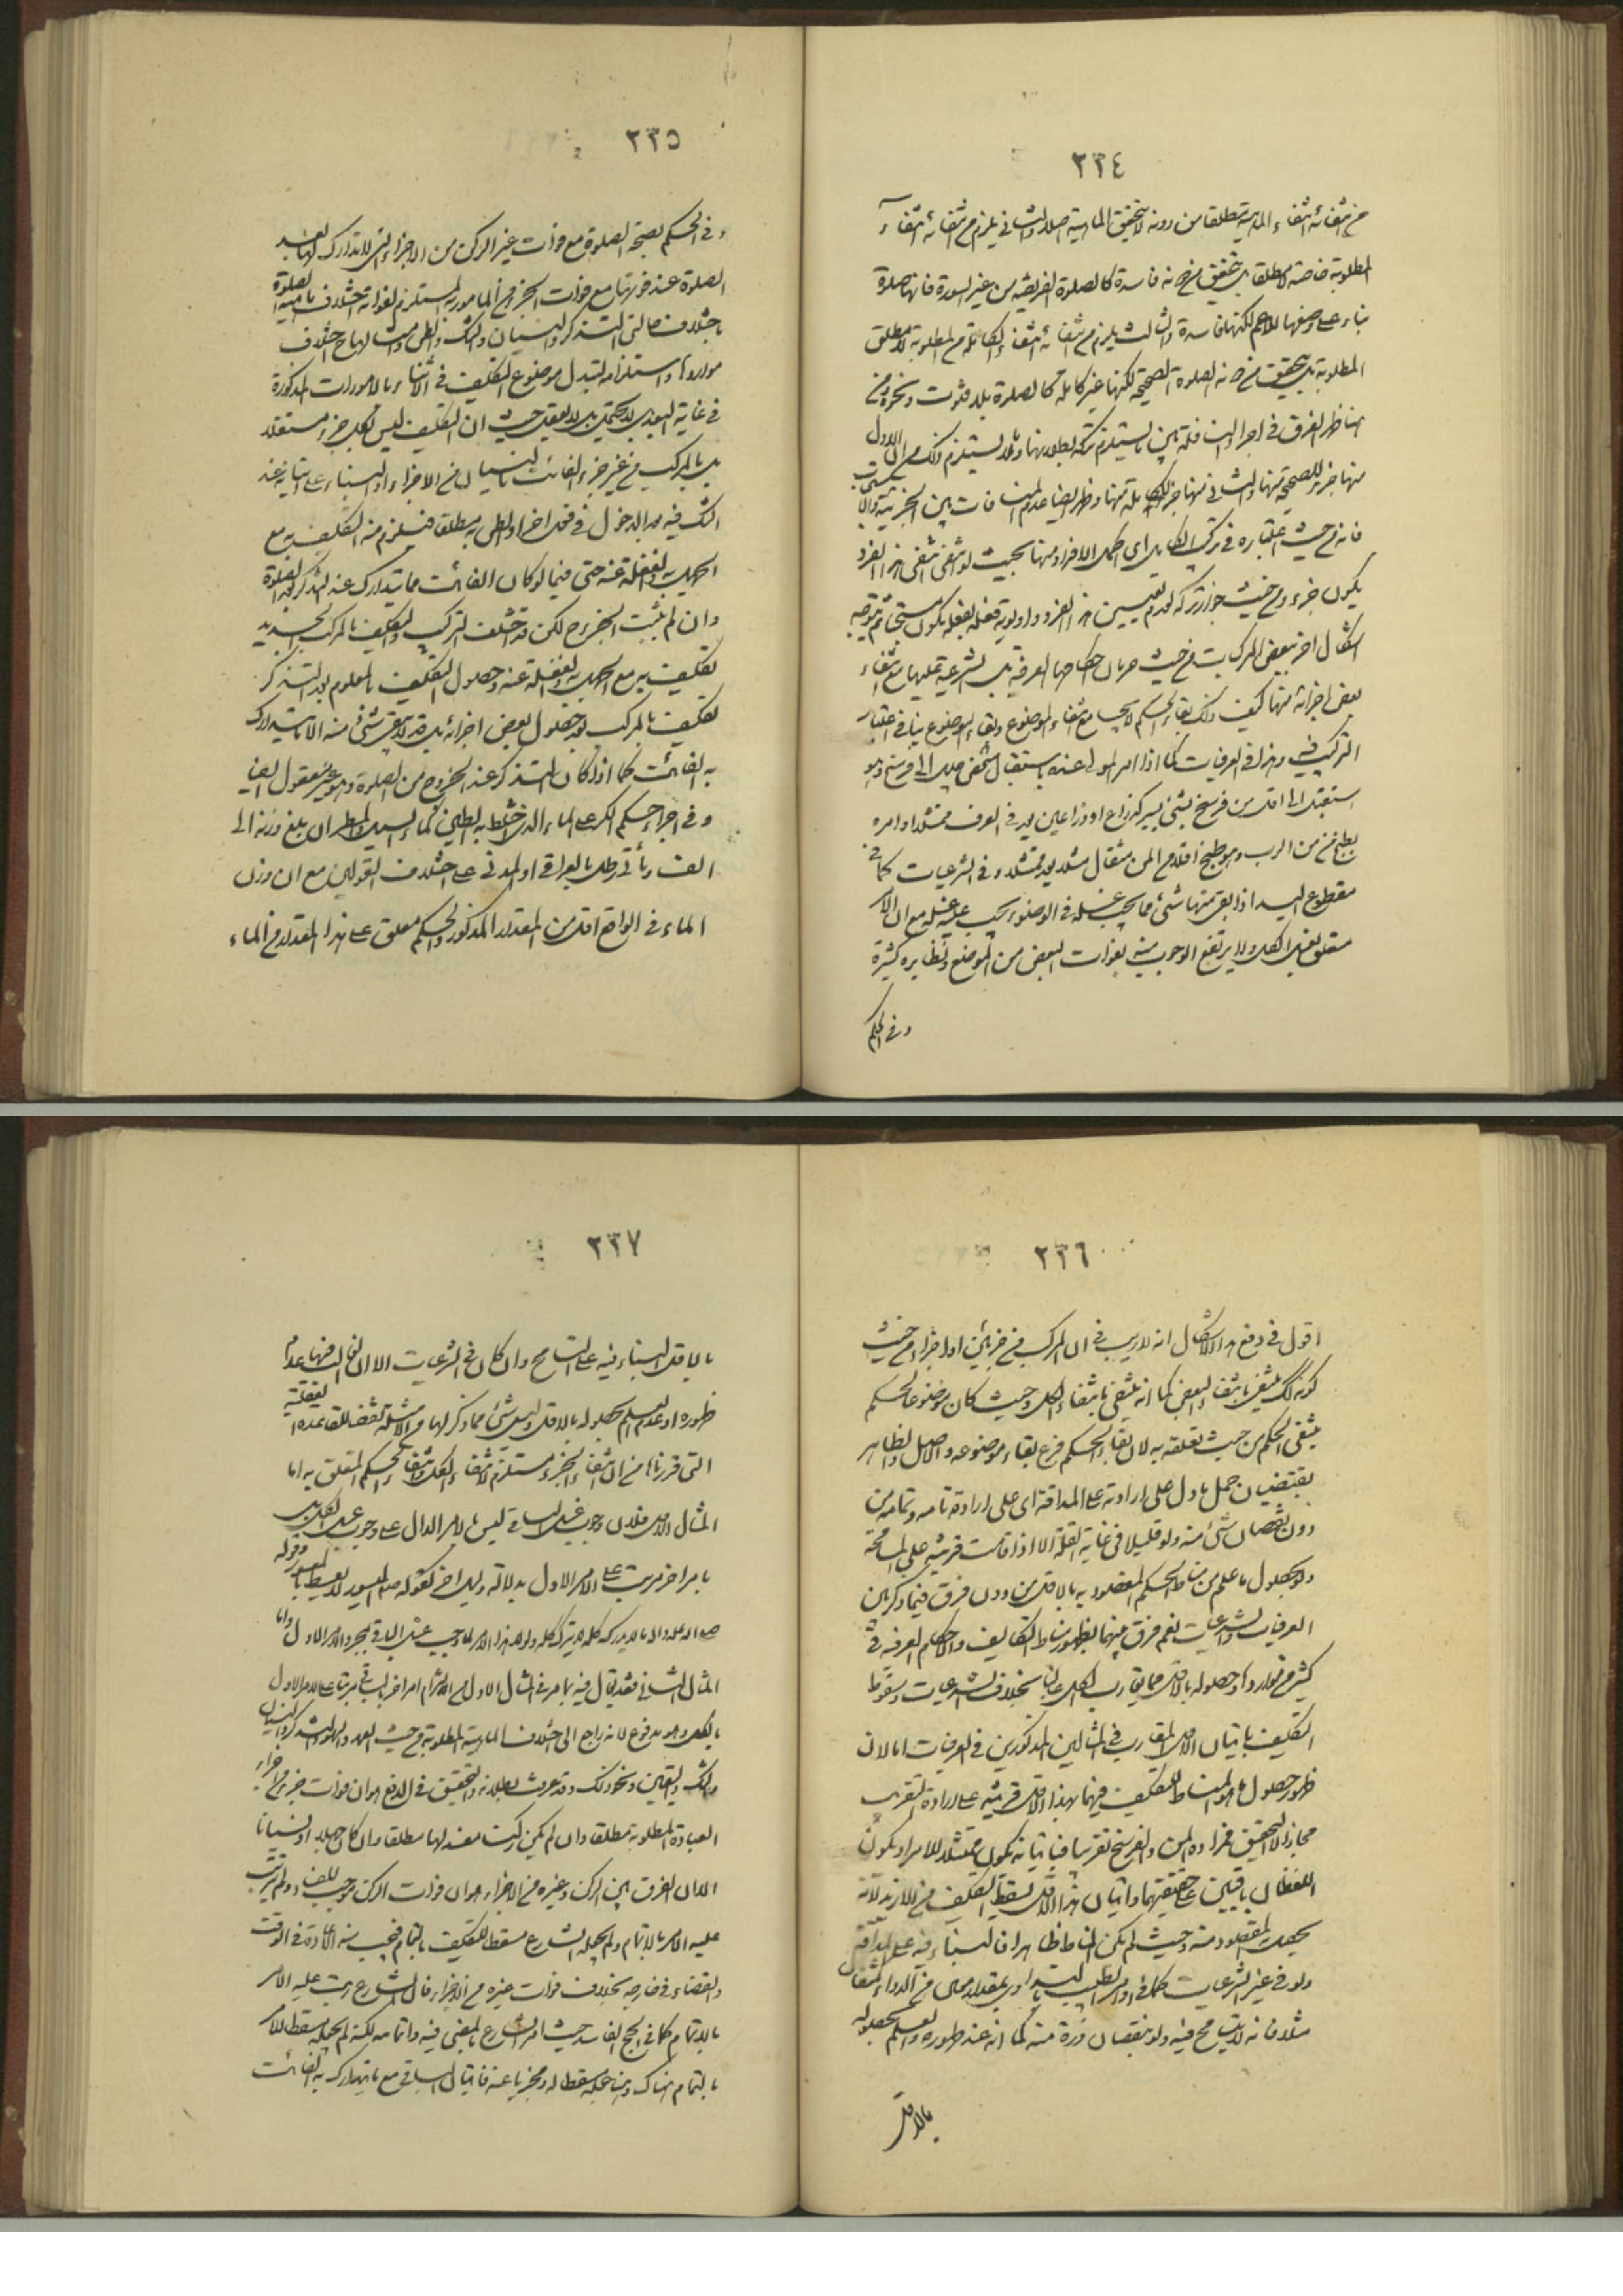 ٢٣٤
من انتفائه انتفاء الماهية مطلقا من دونه لا تتحقق الماهية اصلا والثانى يلزم من انتفائه انتفاء
المطلوبة خاصة لا مطلقا بل تتحقق فى ضمنه فاسدة كالصلوة الفريضة من غير السورة فانها صلوة
بناء على وضعها للاعم لكنها فاسدة والثالث يلزم من انتفائه انتفاء الكاملة من المطلوبة لا مطلق
المطلوبة بل تتحقق فى ضمنه الصلوة الصحيحة لكنها غير كاملة كالصلوة بلا قنوت ونحوه ومن
هنا ظهر الفرق فى اجزاء النافلة بين ما يستلزم تركه بطلانها وما لا يستلزم ذلك مع ان الاول
منها جزء للصحيحة منها والثانى منها جزء للكاملة منها وظهر ايضا عدم المنافات بين الجزئية والاستحباب
فانه من حيث اعتباره فى تركب الكامل اى اكمل الافراد منها بحيث لو انتفى انتفى هذا الفرد
يكون جزء ومن حيث جواز تركه لعدم تعيين هذا الفرد واولوية فعله يكون مستحبا ثم يتوجه
اشكال اخر ببعض المركبات من حيث جريان احكامها العرفية بل الشرعية عليها مع انتفاء
بعض اجزائه منها كيف ذلك بقاء الحكم لا يجامع انتفاء الموضوع وبقاء الموضوع ينافى اعتبار
التركيب فيه وهذا فى العرفيات كما اذا امر المولى عبده باستقبال شخص جليل الى فرسخ وهو
استقبل الى اقل من فرسخ بشئ يسير كذراع او ذراعين يعد فى العرف ممتثلا وامره
بطبخ من من الرب وهو طبخ اقل من المن بمثقال مثلا يعد ممتثلا وفى الشرعيات كما فى
مقطوع اليد اذا بقى منها شئ مما يجب غسله فى الوضوء يجب عليه غسله مع ان الامر
متعلق بغسل الكل ولا يرتفع الوجوب منه بفوات البعض من الموضع ونظايره كثيرة
وفى الحكم
٢٣٥
وفى الحكم بصحة الصلوة مع فوات غير الركن من الاجزاء التى لا تتدارك لها بعد
الصلوة عند فوتها مع فوات الجزء من المامور به المستلزم لفواته باختلاف ماهية الصلوة
باختلاف حالتى التذكر والنسيان والشك والظن وامثالها مع اختلاف
مواردها واستلزامه لتبدل موضوع التكليف فى الاثناء بالامورات المذكورة
فى غاية البعد بل لا يحتمل بل لا يعقل حيث ان التكليف ليس لكل جزء مستقلا
بل بالمركب من غير جزء الفائت بالنسيان من الاجزاء والبناء على اتيانه عند
الشك فيه بعد الدخول فى فعل اخر والظن به مطلقا فيلزم منه التكليف به مع
الجهل به والغفلة عنه حتى فيما لو كان الفائت مما يتدارك عند التذكر بعد الصلوة
وان لم يثبت الخروج لكن قد اختلف التركيب والتكليف بالمركب الجديد
تكليف به مع الجهل به والغفلة عنه وحصول التكليف بالمعلوم بعد التذكر
تكليف بالمركب بعد حصول بعض اجزائه بل قد لا يبقى شئ منه الا ما يتدارك
به الفائت كما اذا كان التذكر عند الخروج من الصلوة وهو غير معقول ايضا
وفى اجراء حكم الكر على الماء الذى اختلط به الطين كماء السيل والمطر ان بلغ وزنه الى
الف ومأتى رطل بالعراقى او المدنى على اختلاف القولين مع ان وزن
الماء فى الواقع اقل من المقدار المذكور والحكم معلق على هذا المقدار من الماء
٢٣٦
اقول فى دفع هذا الاشكال انه لا ريب فى ان المركب من جزئين او اجزاء من حيث
كونه كذلك ينتفى بانتفاء البعض كما انه ينتفى بانتفاء الكل وحيث كان موضوعا لحكم
ينتفى الحكم من حيث تعلقه به لان بقاء الحكم فرع بقاء موضوعه والاصل والظاهر
يقتضيان حمل ما دل على ارادته على المداقة اى على ارادة تامه وتمامه من
دون نقصان شئ منه ولو قليلا فى غاية القلة الا اذا قامت قرينة على المسامحة
ولو بحصول ما علم من مناط الحكم المقصود به بالاقل من دون فرق فيما ذكر بين
العرفيات والشرعيات نعم فرق بينهما بظهور مناط التكاليف والاحكام العرفية فى
كثير من مواردها وحصوله بالاقل مما يقارب الكل غالبا بخلاف الشرعيات وسقوط
التكليف باتيان الاقل المقارب فى المثالين المذكورين فى العرفيات اما لان
ظهور حصول ما هو المناط للتكليف فيهما بهذا الاقل قرينة على ارادة التقريب
مجازا لا التحقيق فمراده المن والفرسخ تقريبا فباتيانه يكون ممتثلا للامر او يكون
اللفظان باقيين على حقيقتهما واتيان هذا الاقل يسقط التكليف من الازيد لانه
يحصل المقصود منه وحيث لم يكن المناط ظاهرا فالبناء فيه على المداقة
ولو فى غير الشرعيات كما فى اوامر الطبيب بالتداوى بمقدار معين من الدواء كمثقال
مثلا فانه لا يتسامح فيه ولو بنقصان ذرة منه كما انه عند ظهوره والعلم بحصوله
بالاقل
٢٣٧
بالاقل البناء فيه على التسامح وان كان فى الشرعيات الا ان الغالب فيها عدم
ظهوره او عدم العلم بحصوله بالاقل وليس شئ مما ذكر لها من الامثلة نقضا للقاعدة العقلية
التى قررناها من ان انتفاء الجزء مستلزم لانتفاء الكل وانتفاء الحكم المتعلق به اما
المثال الاول فلان وجوب غسل الباقى ليس بالامر الدال على وجوب غسل الكل بل
بامر اخر مرتب على الامر الاول بدلالة دليل اخر كقوله ص الميسور لا يسقط بالمعسور وقوله
صلى الله عليه واله ما لا يدرك كله لا يترك كله ولولا هذا الامر لما وجب غسل الباقى بمجرد الامر الاول واما
المثال الثانى فقد يقال فيه بما مر فى المثال الاول من التزام امر اخر بالباقى مرتبا على الامر الاول
بالكل وهو مدفوع لانه راجع الى اختلاف الماهية المطلوبة من حيث العمد والسهو والتذكر والنسيان
والشك واليقين ونحو ذلك وقد عرفت بطلانه والتحقيق فى الدفع هو ان فوات جزء من اجزاء
العبادة المطلوبة مطلقا وان لم يكن ركنا مفسد لها مطلقا وان كان جهلا او نسيانا
الا ان الفرق بين الركن وغيره من الاجزاء هو ان فوات الركن موجب للفساد ولم يترتب
عليه الامر بالاتمام ولم يجعله الشارع مسقطا للتكليف بالتمام فيجب منه الاعادة فى الوقت
والقضاء فى خارجه بخلاف فوات غيره من الاجزاء فان الشارع رتب عليه الامر
بالاتمام كما فى الحج الفاسد حيث امر الشارع بالمضى فيه واتمامه لكنه لم يجعله مسقطا للامر
بالتمام هناك وهنا جعله مسقطا له ومجزيا عنه فاتيان الباقى مع ما يتدارك به الفائت